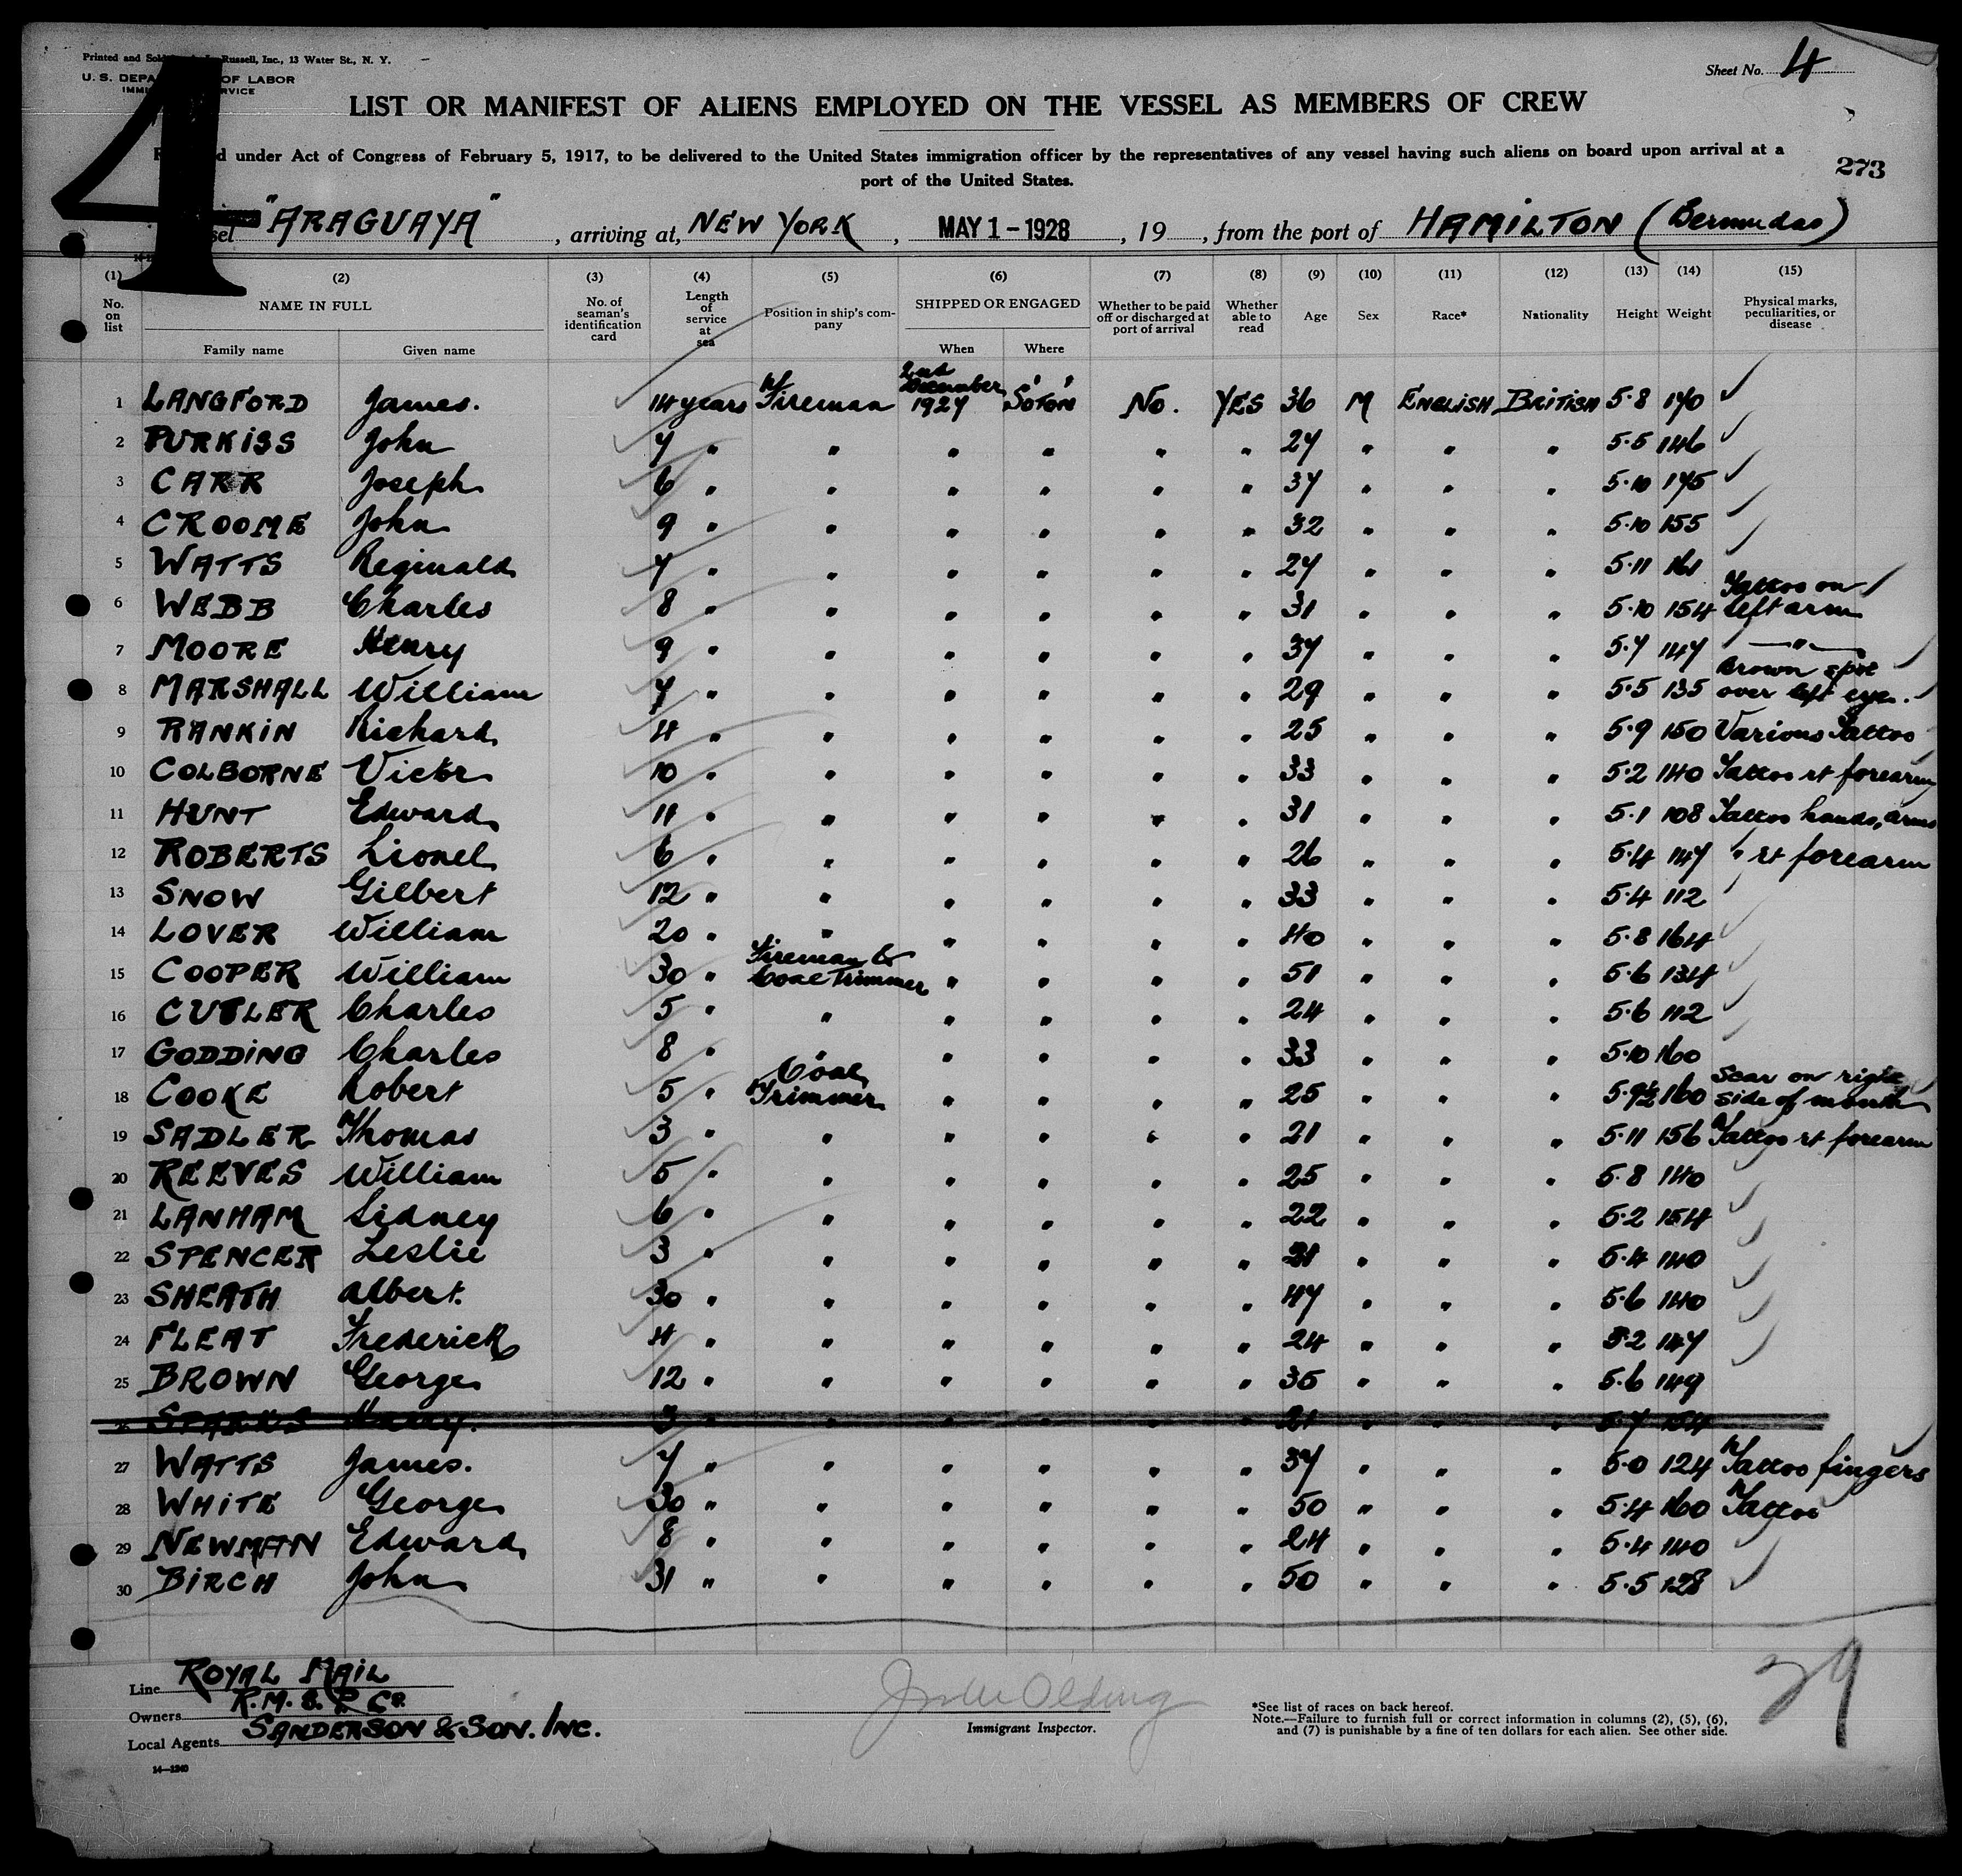 4
Printed and Sold Russell, Inc., 13 Water St., N. Y.
U. S. DEPA OF LABOR
Sheet No. 4
LIST OR MANIFEST OF ALIENS EMPLOYED ON THE VESSEL AS MEMBERS OF CREW
under Act of Congress of February 5, 1917, to be delivered to the United States immigration officer by the representatives of any vessel having such aliens on board upon arrival at a
port of the United States.
273
"ARAGUAYA", arriving at, NEW YORK, MAY 1-1928, 19, from the port of HAMILTON (Bermudas)
(1) (2) (3) (4) (5) (6) (7) (8) (9) (10) (11) (12) (13) (14) (15)
No. on list NAME IN FULL No. of seaman's identification card Length of service at sea Position in ship's company SHIPPED OR ENGAGED Whether to be paid off or discharged at port of arrival Whether able to read Age Sex Race* Nationality Height Weight Physical marks, peculiarities, or disease
Family name Given name When Where
1 LANGFORD James. 14 years Fireman 2nd December 1927 So'ton No. YES 36 M ENGLISH BRITISH 5·8 170
2 PURKISS John 7 " " " " " " 27 " " " 5·5 146
3 CARR Joseph 6 " " " " " " 37 " " " 5·10 175
4 CROOME John 9 " " " " " " 32 " " " 5·10 155
5 WATTS Reginald 7 " " " " " " 27 " " " 5·11 161
6 WEBB Charles 8 " " " " " " 31 " " " 5·10 154 Tattoo on left arm
7 MOORE Henry 9 " " " " " " 37 " " " 5·7 147 "
8 MARSHALL William 7 " " " " " " 29 " " " 5·5 135 Brown spot over left eye.
9 RANKIN Richard 4 " " " " " " 25 " " " 5·9 150 Various Tattoo
10 COLBORNE Victor 10 " " " " " " 33 " " " 5·2 140 Tattoo rt forearm
11 HUNT Edward 11 " " " " " " 31 " " " 5·1 108 Tattoo hands, arms
12 ROBERTS Lionel 6 " " " " " " 26 " " " 5·4 147 " rt forearm
13 SNOW Gilbert 12 " " " " " " 33 " " " 5·4 112
14 LOVER William 20 " " " " " " 40 " " " 5·8 164
15 COOPER William 30 " Fireman & Coal Trimmer " " " " 51 " " " 5·6 134
16 CUTLER Charles 5 " " " " " " 24 " " " 5·6 112
17 GODDING Charles 8 " " " " " " 33 " " " 5·10 160
18 COOKE Robert 5 " Coal Trimmer " " " " 25 " " " 5·9½ 160 Scar on right side of mouth
19 SADLER Thomas 3 " " " " " " 21 " " " 5·11 156 Tattoo rt forearm
20 REEVES William 5 " " " " " " 25 " " " 5·8 140
21 LANHAM Sidney 6 " " " " " " 22 " " " 5·2 154
22 SPENCER Leslie 3 " " " " " " 21 " " " 5·4 140
23 SHEATH Albert. 30 " " " " " " 47 " " " 5·6 140
24 FLEAT Frederick 4 " " " " " " 24 " " " 5·2 147
25 BROWN George 12 " " " " " " 35 " " " 5·6 149
26 Harry. 3 " " " " " " 21 " " " 5·7
27 WATTS James. 7 " " " " " " 37 " " " 5·0 124 Tattoo fingers
28 WHITE George 30 " " " " " " 50 " " " 5·4 160 Tattoo
29 NEWMAN Edward 8 " " " " " " 24 " " " 5·4 140
30 BIRCH John 31 " " " " " " 50 " " " 5·5 128
Line ROYAL MAIL
Owners R.M.S.P. Co.
Local Agents SANDERSON & SON. INC.
Immigrant Inspector.
*See list of races on back hereof.
Note.—Failure to furnish full or correct information in columns (2), (5), (6),
and (7) is punishable by a fine of ten dollars for each alien. See other side.
29
14—1240